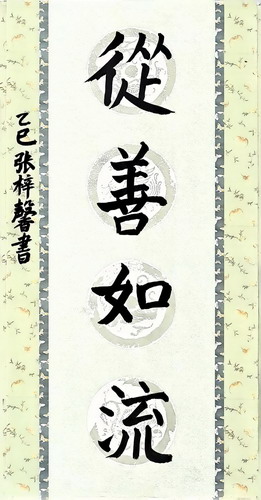 從善如流
乙巳张梓馨書